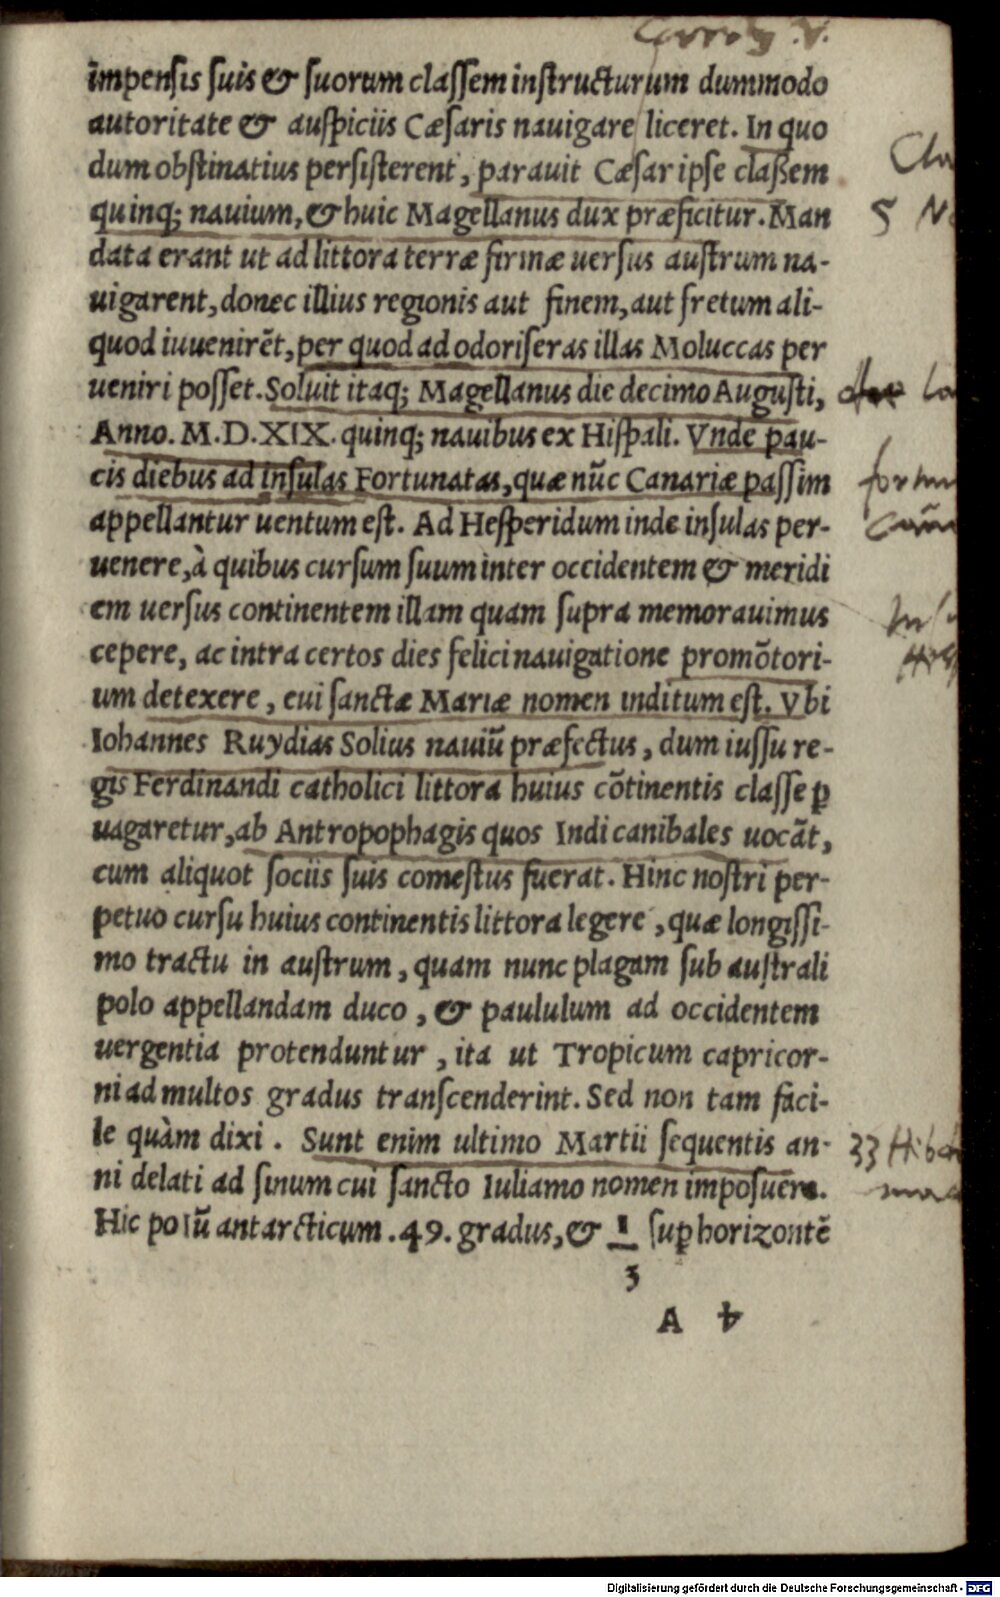 Caroly .V.
impensis suis & suorum classem instructurum dummodo
autoritate & auspiciis Cæsaris nauigare liceret. In quo
dum obstinatius persisterent, parauit Cæsar ipse classem
quinq; nauium, & huic Magellanus dux præficitur. Man
data erant ut ad littora terræ firmæ uersus austrum na-
uigarent, donec illius regionis aut finem, aut fretum ali-
quod iuuenirēt, per quod ad odoriferas illas Moluccas per
ueniri posset. Soluit itaq; Magellanus die decimo Augusti,
Anno. M.D.XIX. quinq; nauibus ex Hispali. Vnde pau-
cis diebus ad insulas Fortunatas, quæ nūc Canariæ passim
appellantur uentum est. Ad Hesperidum inde insulas per-
uenere, à quibus cursum suum inter occidentem & meridi
em uersus continentem illam quam supra memorauimus
cepere, ac intra certos dies felici nauigatione promōtori-
um detexere, cui sanctæ Mariæ nomen inditum est. Vbi
Iohannes Ruydias Solius nauiū præfectus, dum iussu re-
gis Ferdinandi catholici littora huius cōtinentis classe ꝑ
uagaretur, ab Antropophagis quos Indi canibales uocāt,
cum aliquot sociis suis comestus fuerat. Hinc nostri per-
petuo cursu huius continentis littora legere, quæ longissi-
mo tractu in austrum, quam nunc plagam sub australi
polo appellandam duco, & paululum ad occidentem
uergentia protenduntur, ita ut Tropicum capricor-
ni ad multos gradus transcenderint. Sed non tam faci-
le quàm dixi. Sunt enim ultimo Martii sequentis an-
ni delati ad sinum cui sancto Iuliamo nomen imposuere.
Hic polū antarcticum .49. gradus, & 1 suꝑ horizontē
3
A 4
Cla
5 N
fortun
Insu
33 Hib
Digitalisierung gefördert durch die Deutsche Forschungsgemeinschaft - DFG